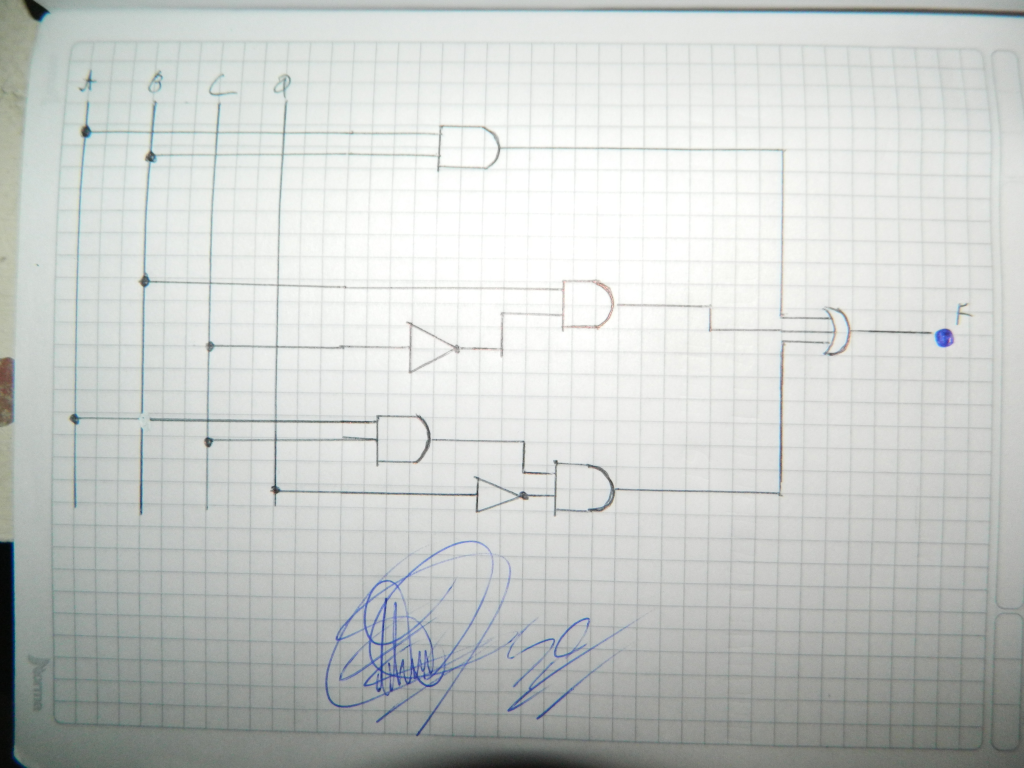 A B C D
F
Norma